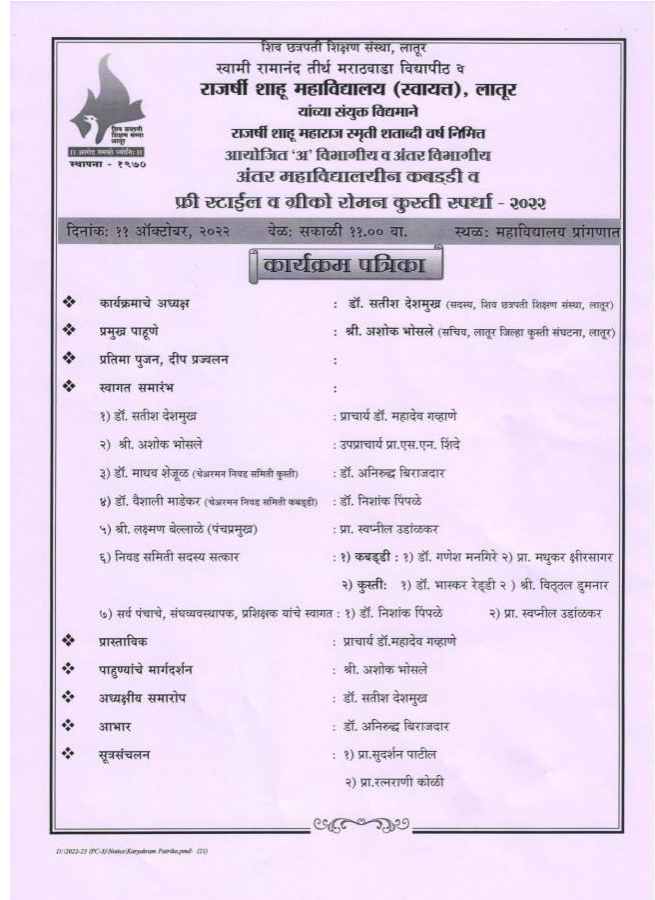 शिव छत्रपती शिक्षण संस्था, लातूर
स्वामी रामानंद तीर्थ मराठवाडा विद्यापीठ व
राजर्षी शाहू महाविद्यालय (स्वायत्त), लातूर
यांच्या संयुक्त विद्यमाने
राजर्षी शाहू महाराज स्मृती शताब्दी वर्ष निमित्त
आयोजित 'अ' विभागीय व अंतर विभागीय
अंतर महाविद्यालयीन कबड्डी व
फ्री स्टाईल व ग्रीको रोमन कुस्ती स्पर्धा - २०२२
शिव छत्रपती
शिक्षण संस्था
लातूर
|| आरोह तमसो ज्योतिः ||
स्थापना - १९७०
दिनांक: ११ ऑक्टोबर, २०२२ वेळ: सकाळी ११.०० वा. स्थळ: महाविद्यालय प्रांगणात
कार्यक्रम पत्रिका
❖ कार्यक्रमाचे अध्यक्ष : डॉ. सतीश देशमुख (सदस्य, शिव छत्रपती शिक्षण संस्था, लातूर)
❖ प्रमुख पाहूणे : श्री. अशोक भोसले (सचिव, लातूर जिल्हा कुस्ती संघटना, लातूर)
❖ प्रतिमा पुजन, दीप प्रज्वलन :
❖ स्वागत समारंभ :
१) डॉ. सतीश देशमुख : प्राचार्य डॉ. महादेव गव्हाणे
२) श्री. अशोक भोसले : उपप्राचार्य प्रा.एस.एन. शिंदे
३) डॉ. माधव शेजूळ (चेअरमन निवड समिती कुस्ती) : डॉ. अनिरुद्ध बिराजदार
४) डॉ. वैशाली माडेकर (चेअरमन निवड समिती कबड्डी) : डॉ. निशांक पिंपळे
५) श्री. लक्ष्मण बेल्लाळे (पंचप्रमुख) : प्रा. स्वप्नील उडांळकर
६) निवड समिती सदस्य सत्कार : १) कबड्डी : १) डॉ. गणेश मनगिरे २) प्रा. मधुकर क्षीरसागर
२) कुस्ती: १) डॉ. भास्कर रेड्डी २ ) श्री. विठ्ठल डुमनार
७) सर्व पंचाचे, संघव्यवस्थापक, प्रशिक्षक यांचे स्वागत : १) डॉ. निशांक पिंपळे २) प्रा. स्वप्नील उडांळकर
❖ प्रास्ताविक : प्राचार्य डॉ.महादेव गव्हाणे
❖ पाहुण्यांचे मार्गदर्शन : श्री. अशोक भोसले
❖ अध्यक्षीय समारोप : डॉ. सतीश देशमुख
❖ आभार : डॉ. अनिरुद्ध बिराजदार
❖ सूत्रसंचलन : १) प्रा.सुदर्शन पाटील
२) प्रा.रत्नराणी कोळी
D:\2022-23 (PC-3)\Notice\Karyakram Patrika.pmd- (21)